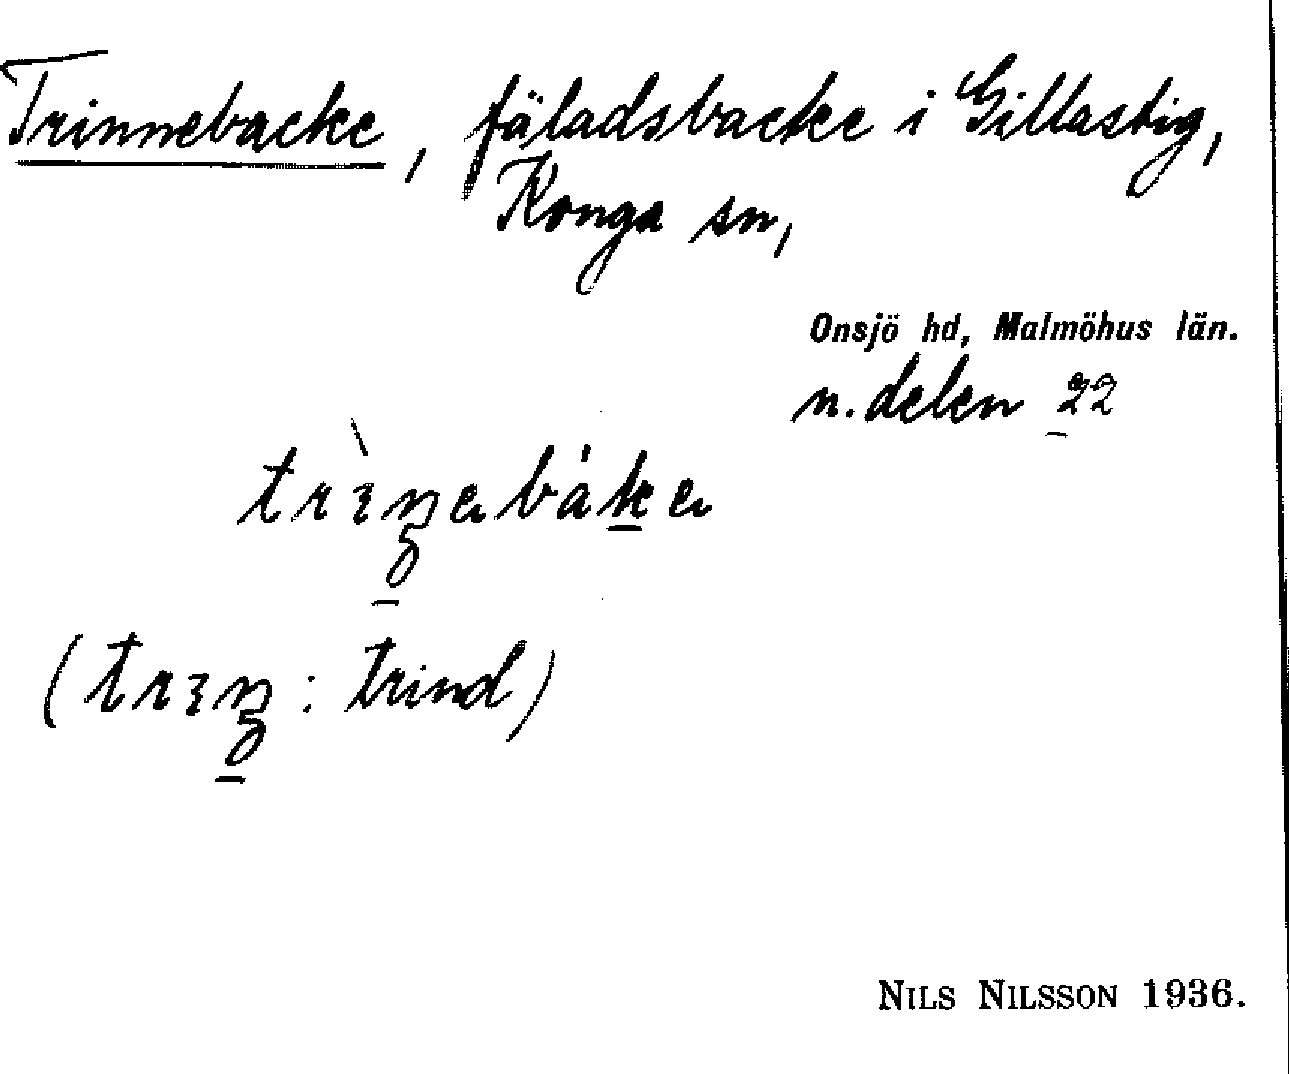 Trinnebacke, fäladsbacke i Gillastig,
Konga sn,
Onsjö hd, Malmöhus län.
n. delen 22
(trɪn̠ : trind)
NILS NILSSON 1936.